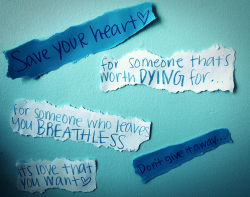 Save your heart♡
for someone that's
worth DYING for...
for someone who leaves
you BREATHLESS
its love that
you want♡
Don't give it away...